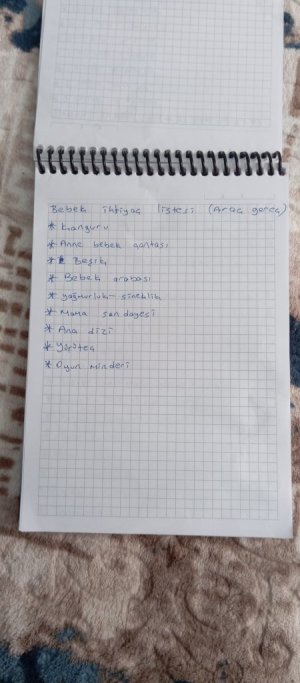 Bebek ihtiyaç listesi (Araç gereç)
* Kanguru
* Anne bebek çantası
* Beşik
* Bebek arabası
* yağmurluk - sineklik
* Mama sandalyesi
* Ana dizi
* Yürüteç
* Oyun minderi